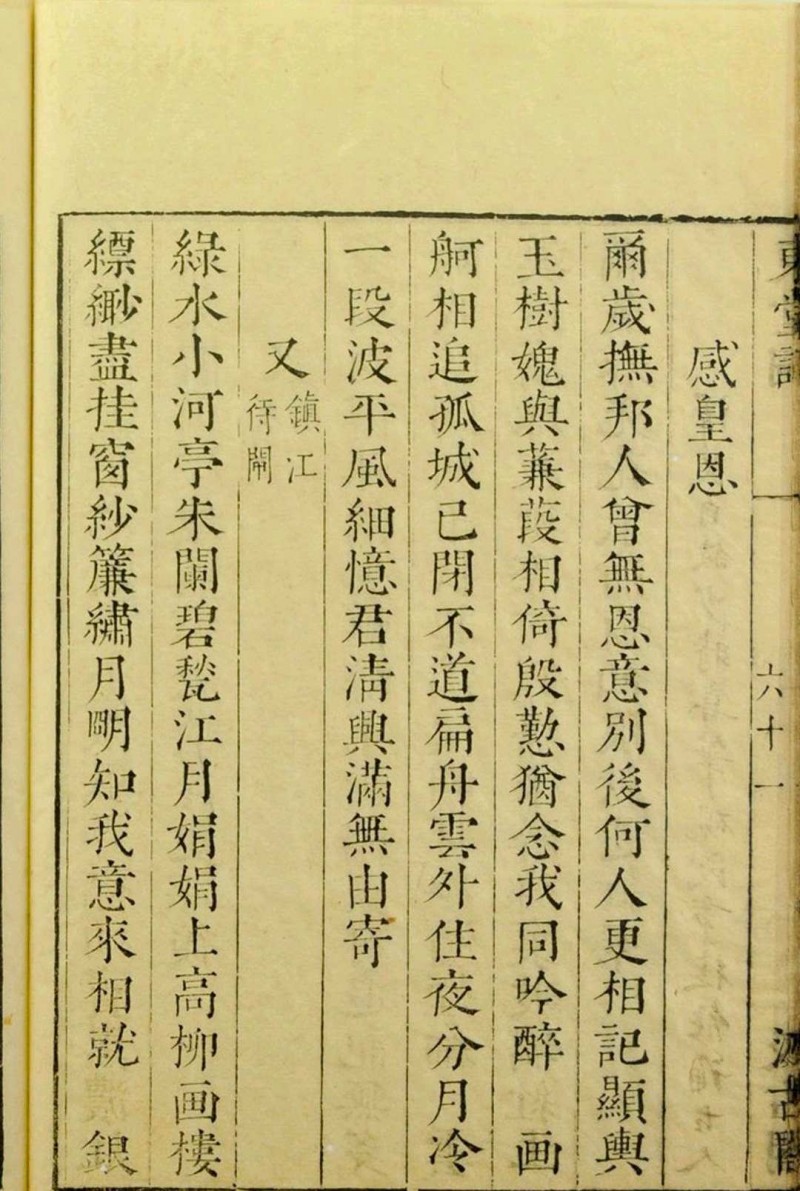 東堂詞 六十一 汲古閣
感皇恩
兩歲撫邦人曾無恩意別後何人更相記顯輿
玉樹媿與蒹葭相倚殷懃猶念我同吟醉 画
舸相追孤城已閉不道扁舟雲外住夜分月冷
一段波平風細憶君清興滿無由寄
又 鎮江待閘
綠水小河亭朱闌碧甃江月娟娟上高柳画樓
縹緲盡挂窗紗簾繡月明知我意來相就 銀